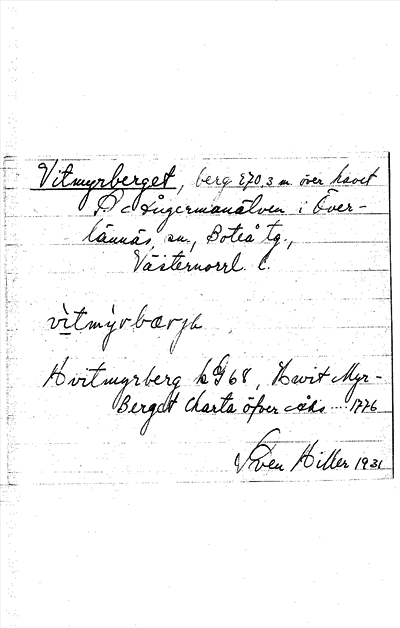 Vitmyrberget, berg 270,3 m över havet
Ångermanälven i Över-
lännäs sn., Boteå tg.,
Västernorrl. l.
vìtmỳrbærjə
Hvitmyrberg kG 68, Hwit Myr-
Berget Charta öfver .... 1776
Sven Hiller 1931